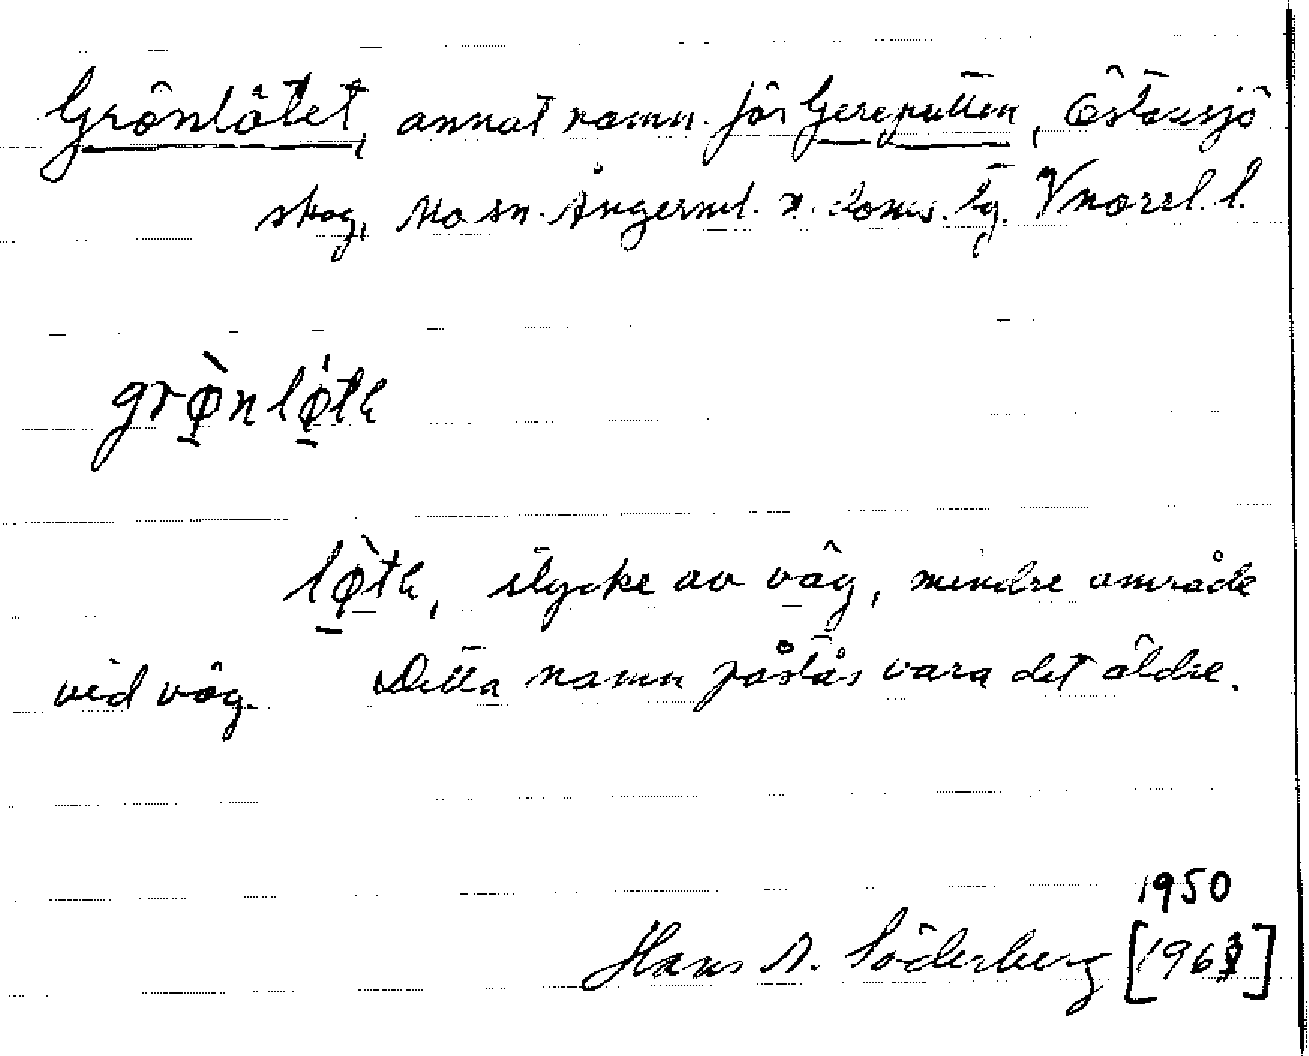 Grönlötet, annat namn för Gereputten, Östansjö
skog, Mo sn. Ångerml. n. doms. lg.
grø̀nlø̀te
lø̀te, stycke av väg, mindre område
vid väg. Detta namn påstås vara det äldre.
1950
Hans A. Söderberg [1963]